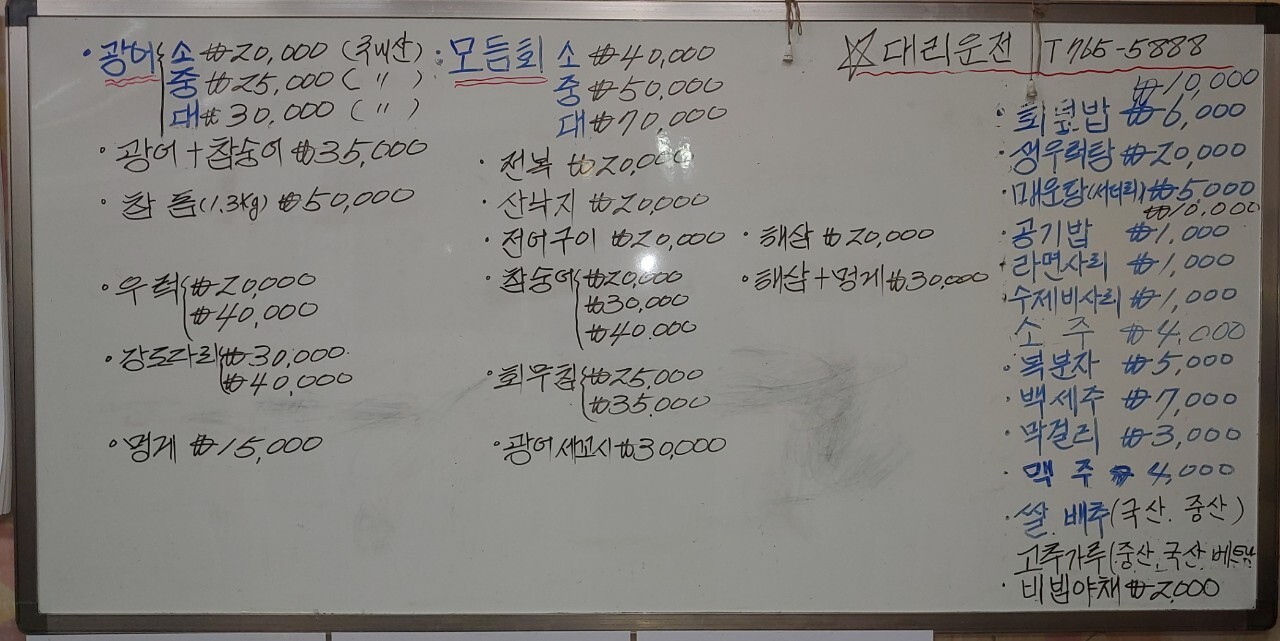 · 광어 소 ₩20,000 (국내산)
중 ₩25,000 ( " )
대 ₩30,000 ( " )
· 광어 + 참숭어 ₩35,000
· 참돔 (1.3kg) ₩50,000
· 우럭 ₩20,000
₩40,000
· 강도다리 ₩30,000
₩40,000
· 멍게 ₩15,000
: 모듬회 소 ₩40,000
중 ₩50,000
대 ₩70,000
· 전복 ₩20,000
· 산낙지 ₩20,000
· 전어구이 ₩20,000
· 참숭어 ₩20,000
₩30,000
₩40.000
· 회무침 ₩25,000
₩35.000
· 광어세꼬시 ₩30,000
· 해삼 ₩20,000
· 해삼 + 멍게 ₩30,000
☆대리운전 T 765-5888
₩10,000
· 회덮밥 ₩6,000
· 생우럭탕 ₩20,000
· 매운탕(서더리) ₩5,000
₩10.000
· 공기밥 ₩1,000
· 라면사리 ₩1,000
· 수제비사리 ₩1,000
· 소주 ₩4,000
· 복분자 ₩5,000
· 백세주 ₩7,000
· 막걸리 ₩3,000
· 맥주 ₩4,000
· 쌀. 배추(국산. 중산)
고추가루(중산.국산.베트남
· 비빔야채 ₩2,000